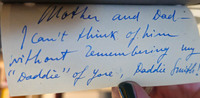 Mother and Dad—
I can't think of him
without remembering my
"Daddie" of yore; Daddie Smith!